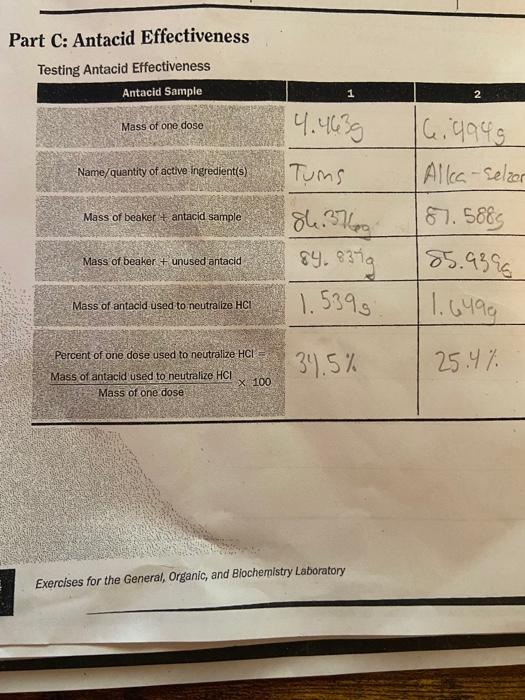 Part C: Antacid Effectiveness
Testing Antacid Effectiveness
Antacid Sample 1 2
Mass of one dose 4.463g 6.494g
Name/quantity of active ingredient(s) Tums Alka-Selzer
Mass of beaker + antacid sample 86.376g 87.588g
Mass of beaker + unused antacid 84.837g 85.939g
Mass of antacid used to neutralize HCl 1.539g 1.649g
Percent of one dose used to neutralize HCl = 34.5% 25.4%
Mass of antacid used to neutralize HCl × 100
Mass of one dose
Exercises for the General, Organic, and Biochemistry Laboratory